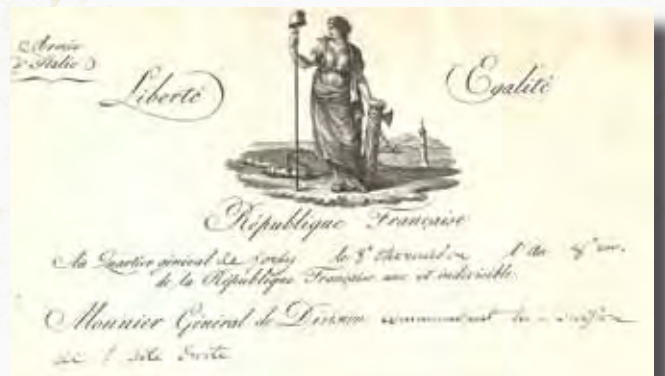 Armée
d'Italie
Liberté
Egalité
République Française
Au Quartier général de le 8 thermidor l'An 8 em.
de la République Française une et indivisible.
Monnier Général de Division commandant la
de l'